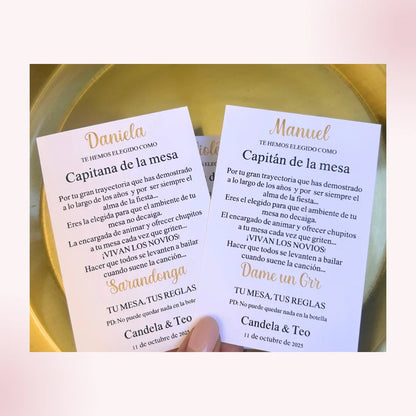 Daniela
TE HEMOS ELEGIDO COMO
Capitana de la mesa
Por tu gran trayectoria que has demostrado
a lo largo de los años y por ser siempre el
alma de la fiesta...
Eres la elegida para que el ambiente de tu
mesa no decaiga.
La encargada de animar y ofrecer chupitos
a tu mesa cada vez que griten...
¡VIVAN LOS NOVIOS!
Hacer que todos se levanten a bailar
cuando suene la canción...
Sarandonga
TU MESA, TUS REGLAS
PD: No puede quedar nada en la bote
Candela & Teo
11 de octubre de 2025
Manuel
TE HEMOS ELEGIDO COMO
Capitán de la mesa
Por tu gran trayectoria que has demostrado
a lo largo de los años y por ser siempre el
alma de la fiesta...
Eres el elegido para que el ambiente de tu
mesa no decaiga.
El encargado de animar y ofrecer chupitos
a tu mesa cada vez que griten...
¡VIVAN LOS NOVIOS!
Hacer que todos se levanten a bailar
cuando suene la canción...
Dame un Grr
TU MESA, TUS REGLAS
PD: No puede quedar nada en la botella
Candela & Teo
11 de octubre de 2025